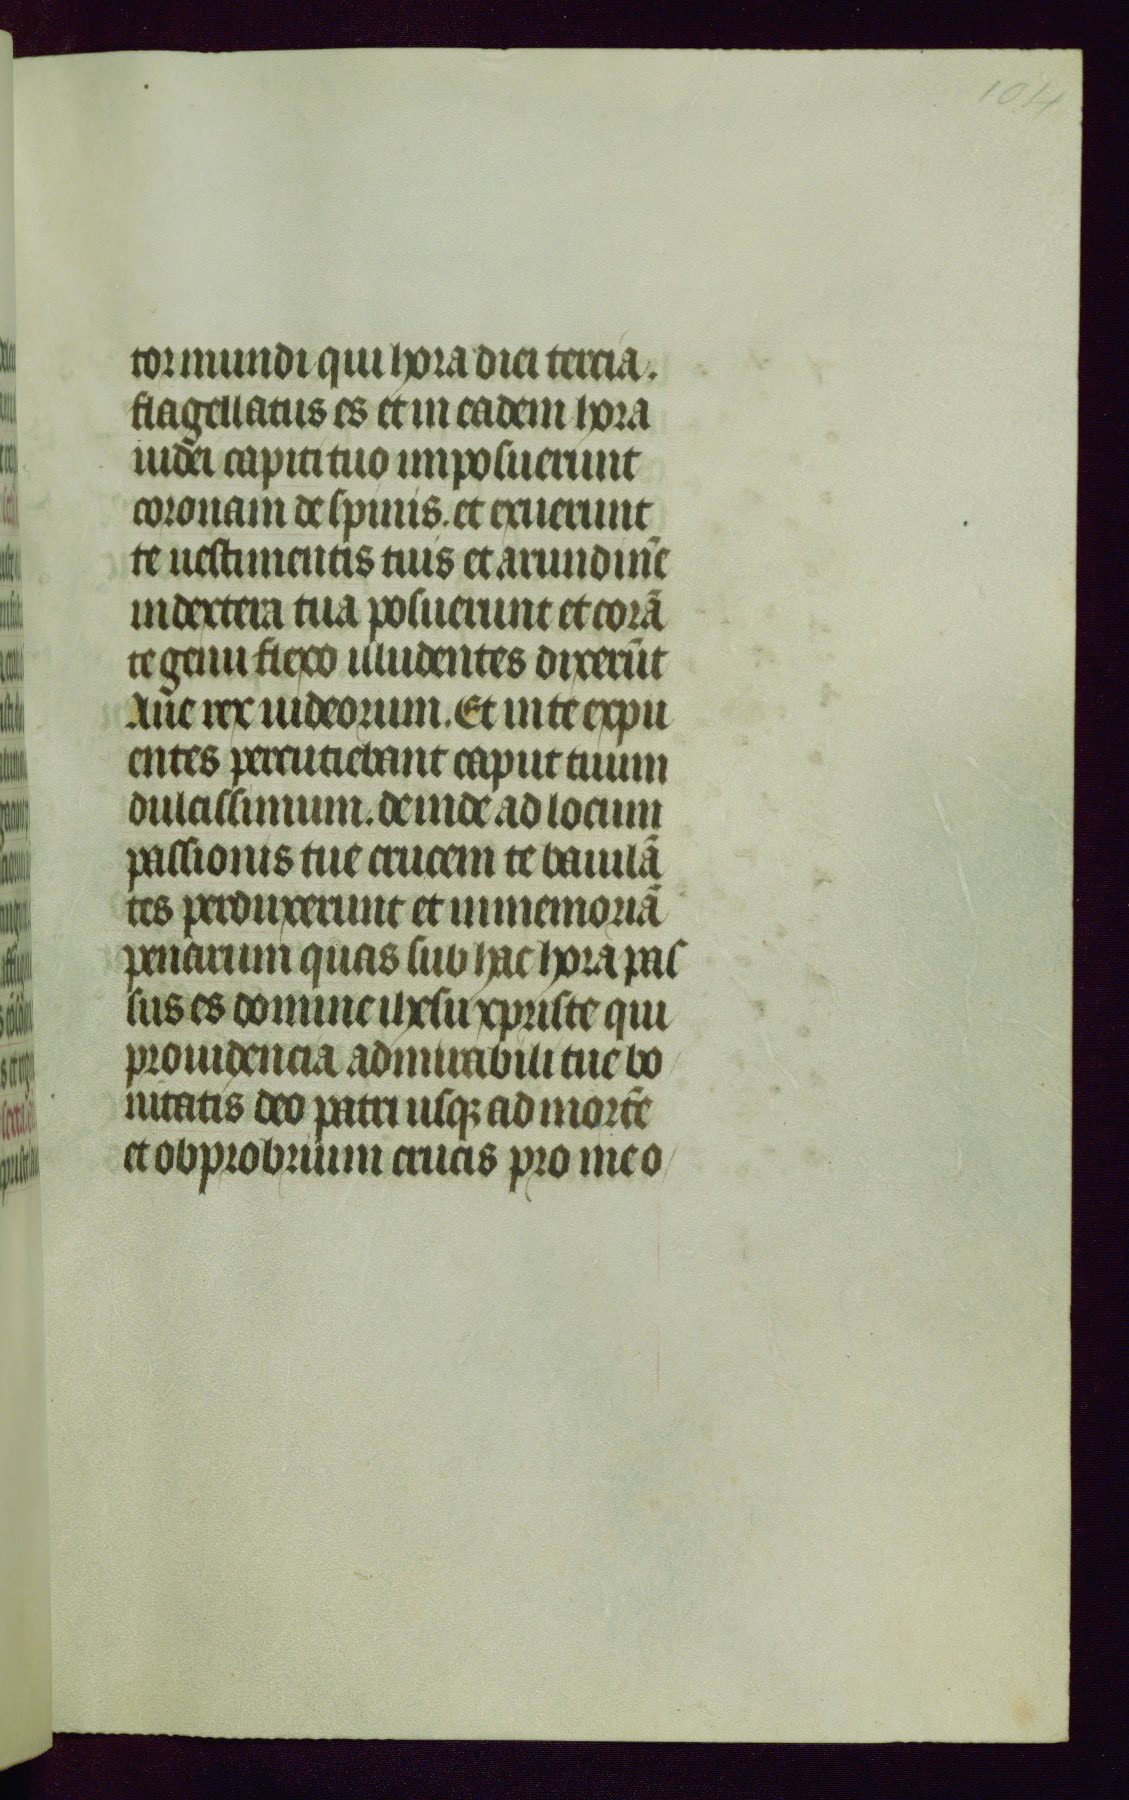 104
tor mundi qui hora diei tercia.
flagellatus es et in eadem hora
iudei capiti tuo imposuerunt
coronam de spinis. et exuerunt
te uestimentis tuis et arundinē
in dextera tua posuerunt et corā
te genu flexo illudentes dixerūt
Aue rex iudeorum. Et in te expu
entes percutiebant caput tuum
dulcissimum. deinde ad locum
passionis tue crucem te baiulā
tes perduxerunt et in memoriā
penarum quas sub hac hora pas
sus es domine ihesu xpriste qui
prouidencia admirabili tue bo
nitatis deo patri usqꝫ ad mortē
et obprobrium crucis pro me o